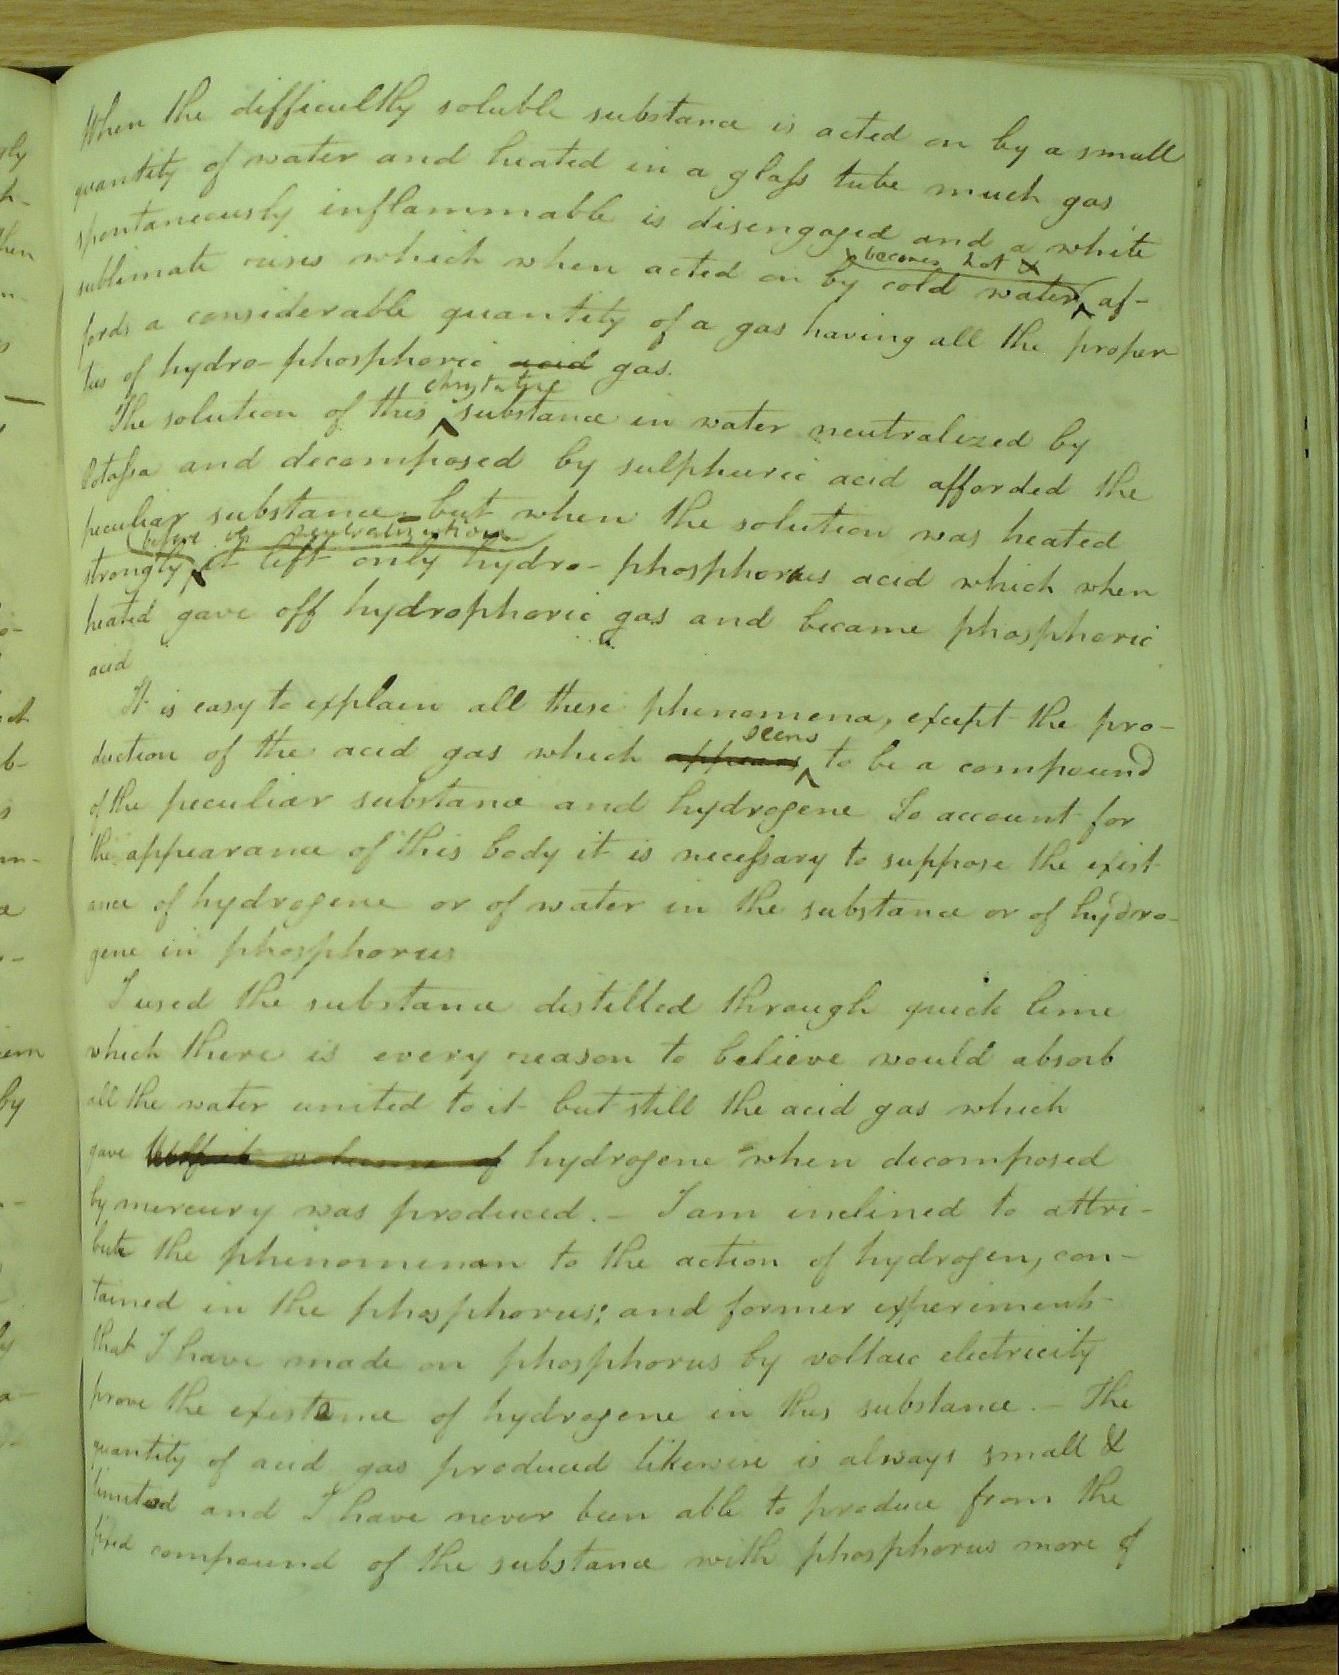 When the difficulthy soluble substance is acted on by a small
quantity of water and heated in a glass tube much gas
spontaneously inflammable is disengaged and a white
becomes hot &
sublimate rises which when acted on by cold water af-
fords a considerable quantity of a gas having all the proper
ties of hydro-phosphoric acid gas.
The solution of this substance in water neutralized by
Potassa and decomposed by sulphuric acid afforded the
peculiar substance - but when the solution was heated
before its neutralization
strongly it left only hydro-phosphorus acid which when
heated gave off hydrophoric gas and became phosphoric
acid
It is easy to explain all these phenomena, except the pro-
seems
duction of the acid gas which appears to be a compound
of the peculiar substance and hydrogene To account for
the appearance of this body it is necessary to suppose the exist
ance of hydrogene or of water in the substance or of hydro-
gene in phosphorus
I used the substance distilled through quick lime
which there is every reason to believe would absorb
all the water united to it but still the acid gas which
gave volume of hydrogene when decomposed
by mercury was produced. - I am inclined to attri-
bute the phenomenon to the action of hydrogen, con-
tained in the phosphorus; and former experiments
that I have made on phosphorus by voltaic electricity
prove the existence of hydrogene in this substance. - The
quantity of acid gas produced likewise is always small &
limited and I have never been able to produce from the
compound of the substance with phosphorus more of